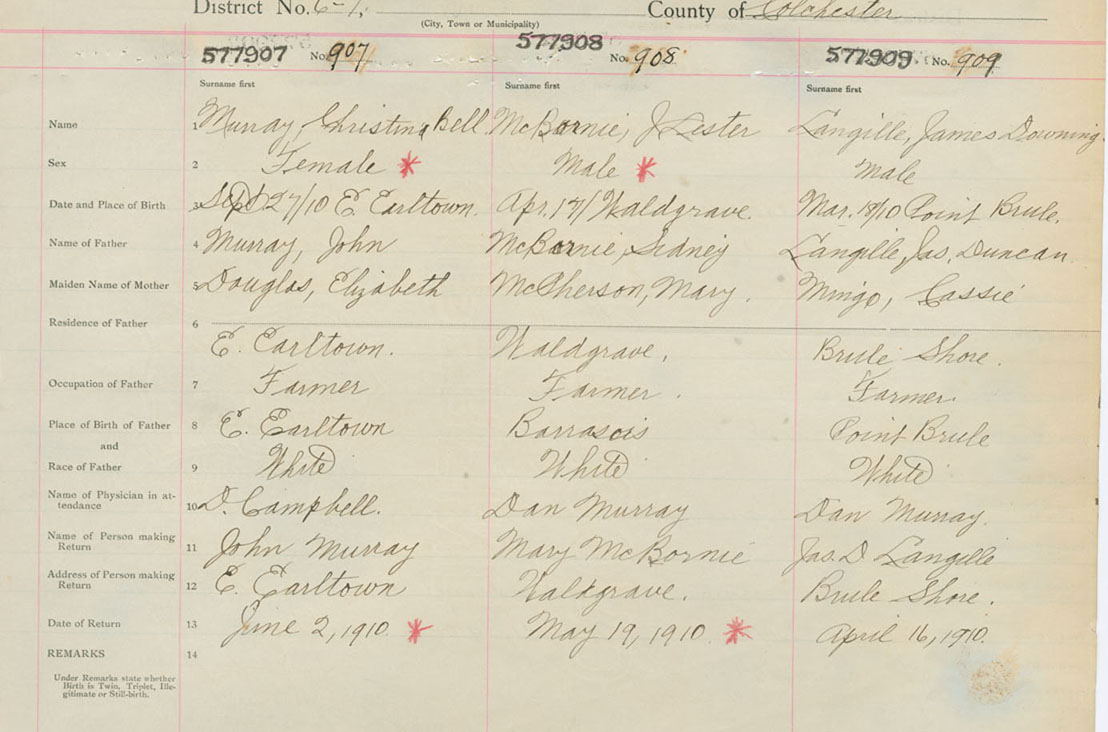 District No. 6-1. County of Colchester
(City, Town or Municipality)
577907 No. 907 577908 No. 908 577909 No. 909
Surname first Surname first Surname first
Name 1 Murray, Christina Bell McBornie, J Lester Langille, James Downing.
Sex 2 Female * Male * Male
Date and Place of Birth 3 Sept 27/10 E. Earltown. Apr. 17/ Waldgrave. Mar. 18/10 Point Brule.
Name of Father 4 Murray, John McBornie, Sidney Langille, Jas. Duncan
Maiden Name of Mother 5 Douglas, Elizabeth McPherson, Mary. Mingo, Cassie
Residence of Father 6
E. Earltown. Waldgrave, Brule Shore.
Occupation of Father 7 Farmer Farmer. Farmer.
Place of Birth of Father 8 E. Earltown Barrasois Point Brule
and
Race of Father 9 White White White
Name of Physician in at-
tendance 10 D. Campbell. Dan Murray Dan Murray.
Name of Person making
Return 11 John Murray Mary McBornie Jas. D Langille
Address of Person making
Return 12 E. Earltown Waldgrave. Brule Shore.
Date of Return 13 June 2, 1910 * May 19, 1910 * April 16, 1910.
REMARKS 14
Under Remarks state whether
Birth is Twin, Triplet, Ille-
gitimate or Still-birth.